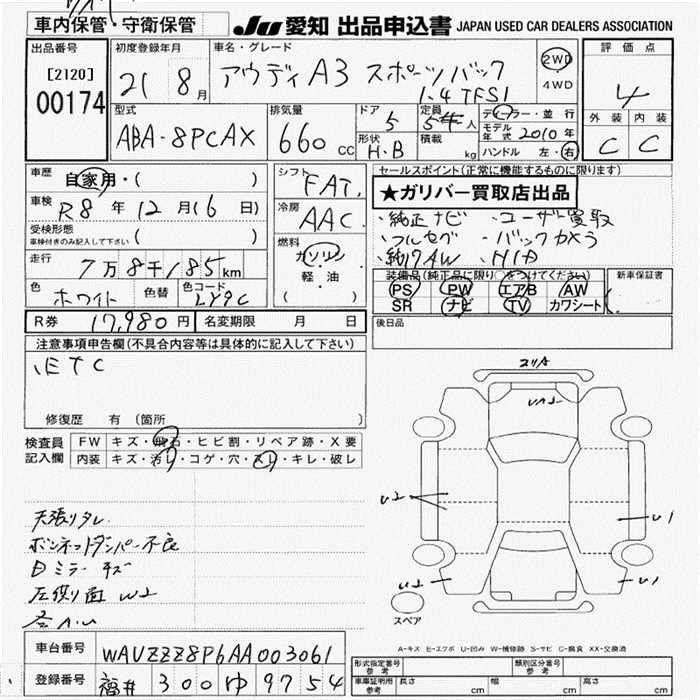 車内保管・守衛保管
JU 愛知 出品申込書 JAPAN USED CAR DEALERS ASSOCIATION
出品番号 [2120] 00174
初度登録年月 21 8月
車名・グレード アウディA3 スポーツバック
1.4 TFSI
2WD
4WD
評価点 4
外装 C 内装 C
型式 ABA-8PCAX
排気量 660 cc
ドア 5
形状 H.B
定員 5人
積載 kg
ディーラー・並行
モデル年式 2010年
ハンドル 左・右
車歴 自家用・( )
車検 R8年 12月(6日)
受検形態
車検付きのみ記入して下さい ( )
走行 7万8千185km
色 ホワイト 色替 色コード LY9C
シフト FAT.
冷房 AAC
燃料 ガソリン
軽・油
( )
セールスポイント(正常に機能するものに限ります)
★ガリバー買取店出品
・純正ナビ ・ユーザー買取
・フルセグ ・バックカメラ
・純17AW ・HID
装備品(純正品に限り○をつけてください)
PS PW エアB AW
SR ナビ TV カワシート
新車保証書
後日品
R券 17,980円 名変期限 月 日
注意事項申告欄(不具合内容等は具体的に記入して下さい)
・ETC
修復歴 有 (箇所 )
検査員記入欄
FW キズ・飛石・ヒビ割・リペア跡・X要
内装 キズ・汚レ・コゲ・穴・スレ・キレ・破レ
天張りタレ
ボンネットダンパー不良
Dミラーキズ
左側面 W2
各A.U
スリA
UA2
U2
U1
U2
U1
スペア
A-キズ E-エクボ U-凹み W-補修跡 S-サビ C-腐食 XX-交換済
車台番号 WAUZZZ8P6AA003061
登録番号 福井 300 ゆ 9754
形式指定番号 参考
類別区分番号 参考
車庫証明用 参考 長さ cm 幅 cm 高さ cm